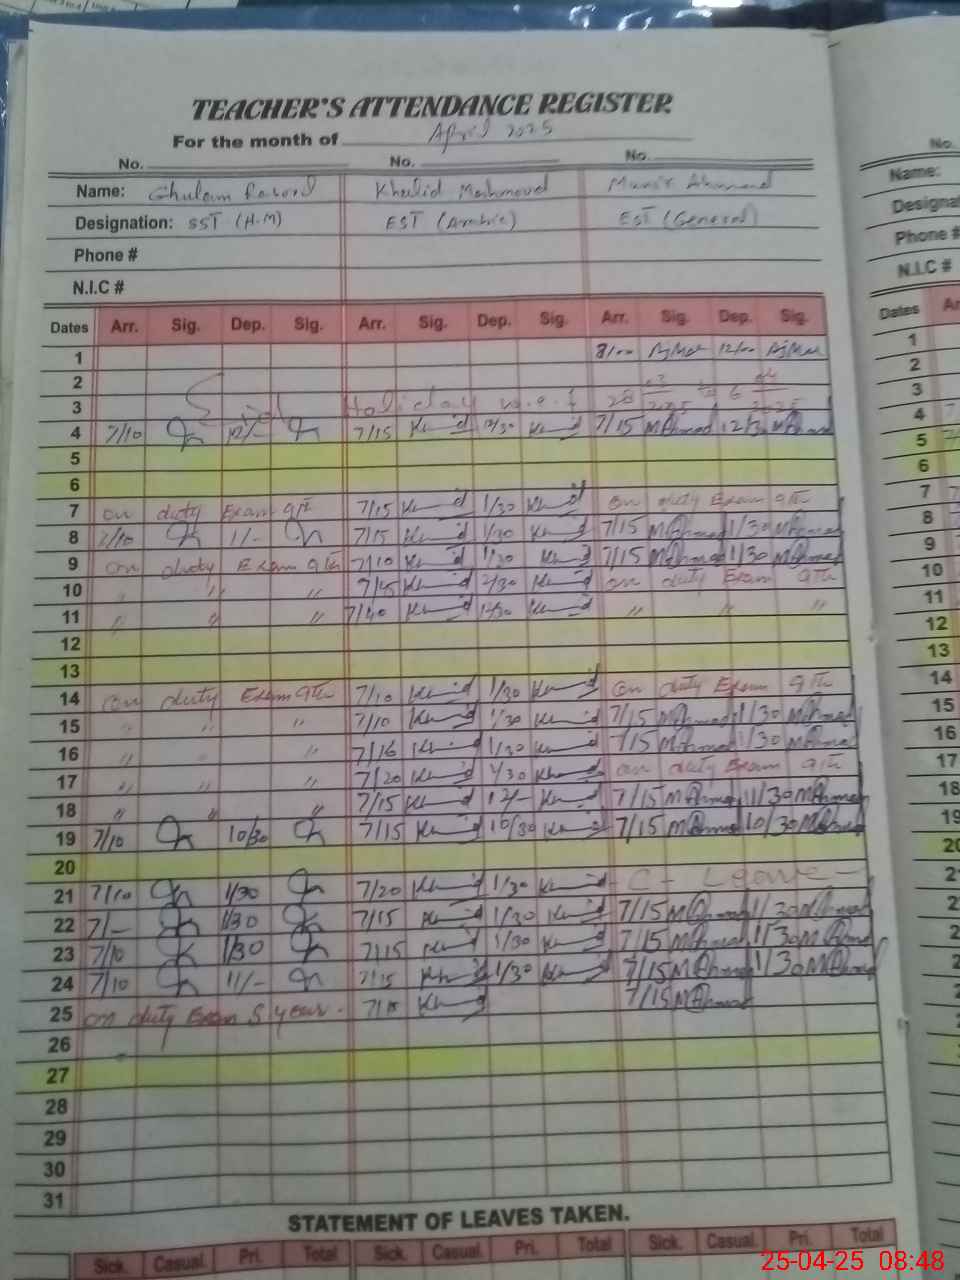 TEACHER'S ATTENDANCE REGISTER
For the month of April 2025
No. No. No.
Name: Ghulam Rasool Khalid Mahmood Munir Ahmad
Designation: SST (H.M) EST (Arabic) EST (General)
Phone #
N.I.C #
Dates Arr. Sig. Dep. Sig. Arr. Sig. Dep. Sig. Arr. Sig. Dep. Sig.
1 8/00 12/00
2
3 Eid Holiday w.e.f 28 03 2025 to 6 04 2025
4 7/10 12/- 7/15 12/30 7/15 MAhmad 12/30 MAhmad
5
6
7 on duty Exam 9th 7/15 1/30 on duty Exam 9th
8 7/10 1/- 7/15 1/30 7/15 MAhmad 1/30 MAhmad
9 on duty Exam 9th 7/10 1/30 7/15 MAhmad 1/30 MAhmad
10 " " " 2/30 on duty Exam 9th
11 " " " 7/40 12/30 " " "
12
13
14 on duty Exam 9th 7/10 1/30 on duty Exam 9th
15 " " 7/10 1/30 7/15 MAhmad 1/30 MAhmad
16 " " 7/16 1/30 7/15 MAhmad 1/30 MAhmad
17 " " " 7/20 1/30 on duty Exam 9th
18 " " " 7/15 12/- 7/15 MAhmad 11/30 MAhmad
19 7/10 10/30 7/15 10/30 7/15 MAhmad 10/30 MAhmad
20
21 7/10 1/30 7/20 1/30 - C - Leave -
22 7/- 1/30 7/15 1/30 7/15 MAhmad 1/30 MAhmad
23 7/10 1/30 7/15 1/30 7/15 MAhmad 1/30 MAhmad
24 7/10 11/- 7/15 1/30 7/15 MAhmad 1/30 MAhmad
25 on duty Exam 5 year. 7/15 7/15 MAhmad
26
27
28
29
30
31
STATEMENT OF LEAVES TAKEN.
Sick. Casual. Pri. Total Sick. Casual. Pri. Total Sick. Casual. Pri. Total
No.
Name:
Designat
Phone #
N.I.C #
Dates Ar
1
2
3
4
5
6
7
8
9
10
11
12
13
14
15
16
17
18
19
20
25-04-25 08:48